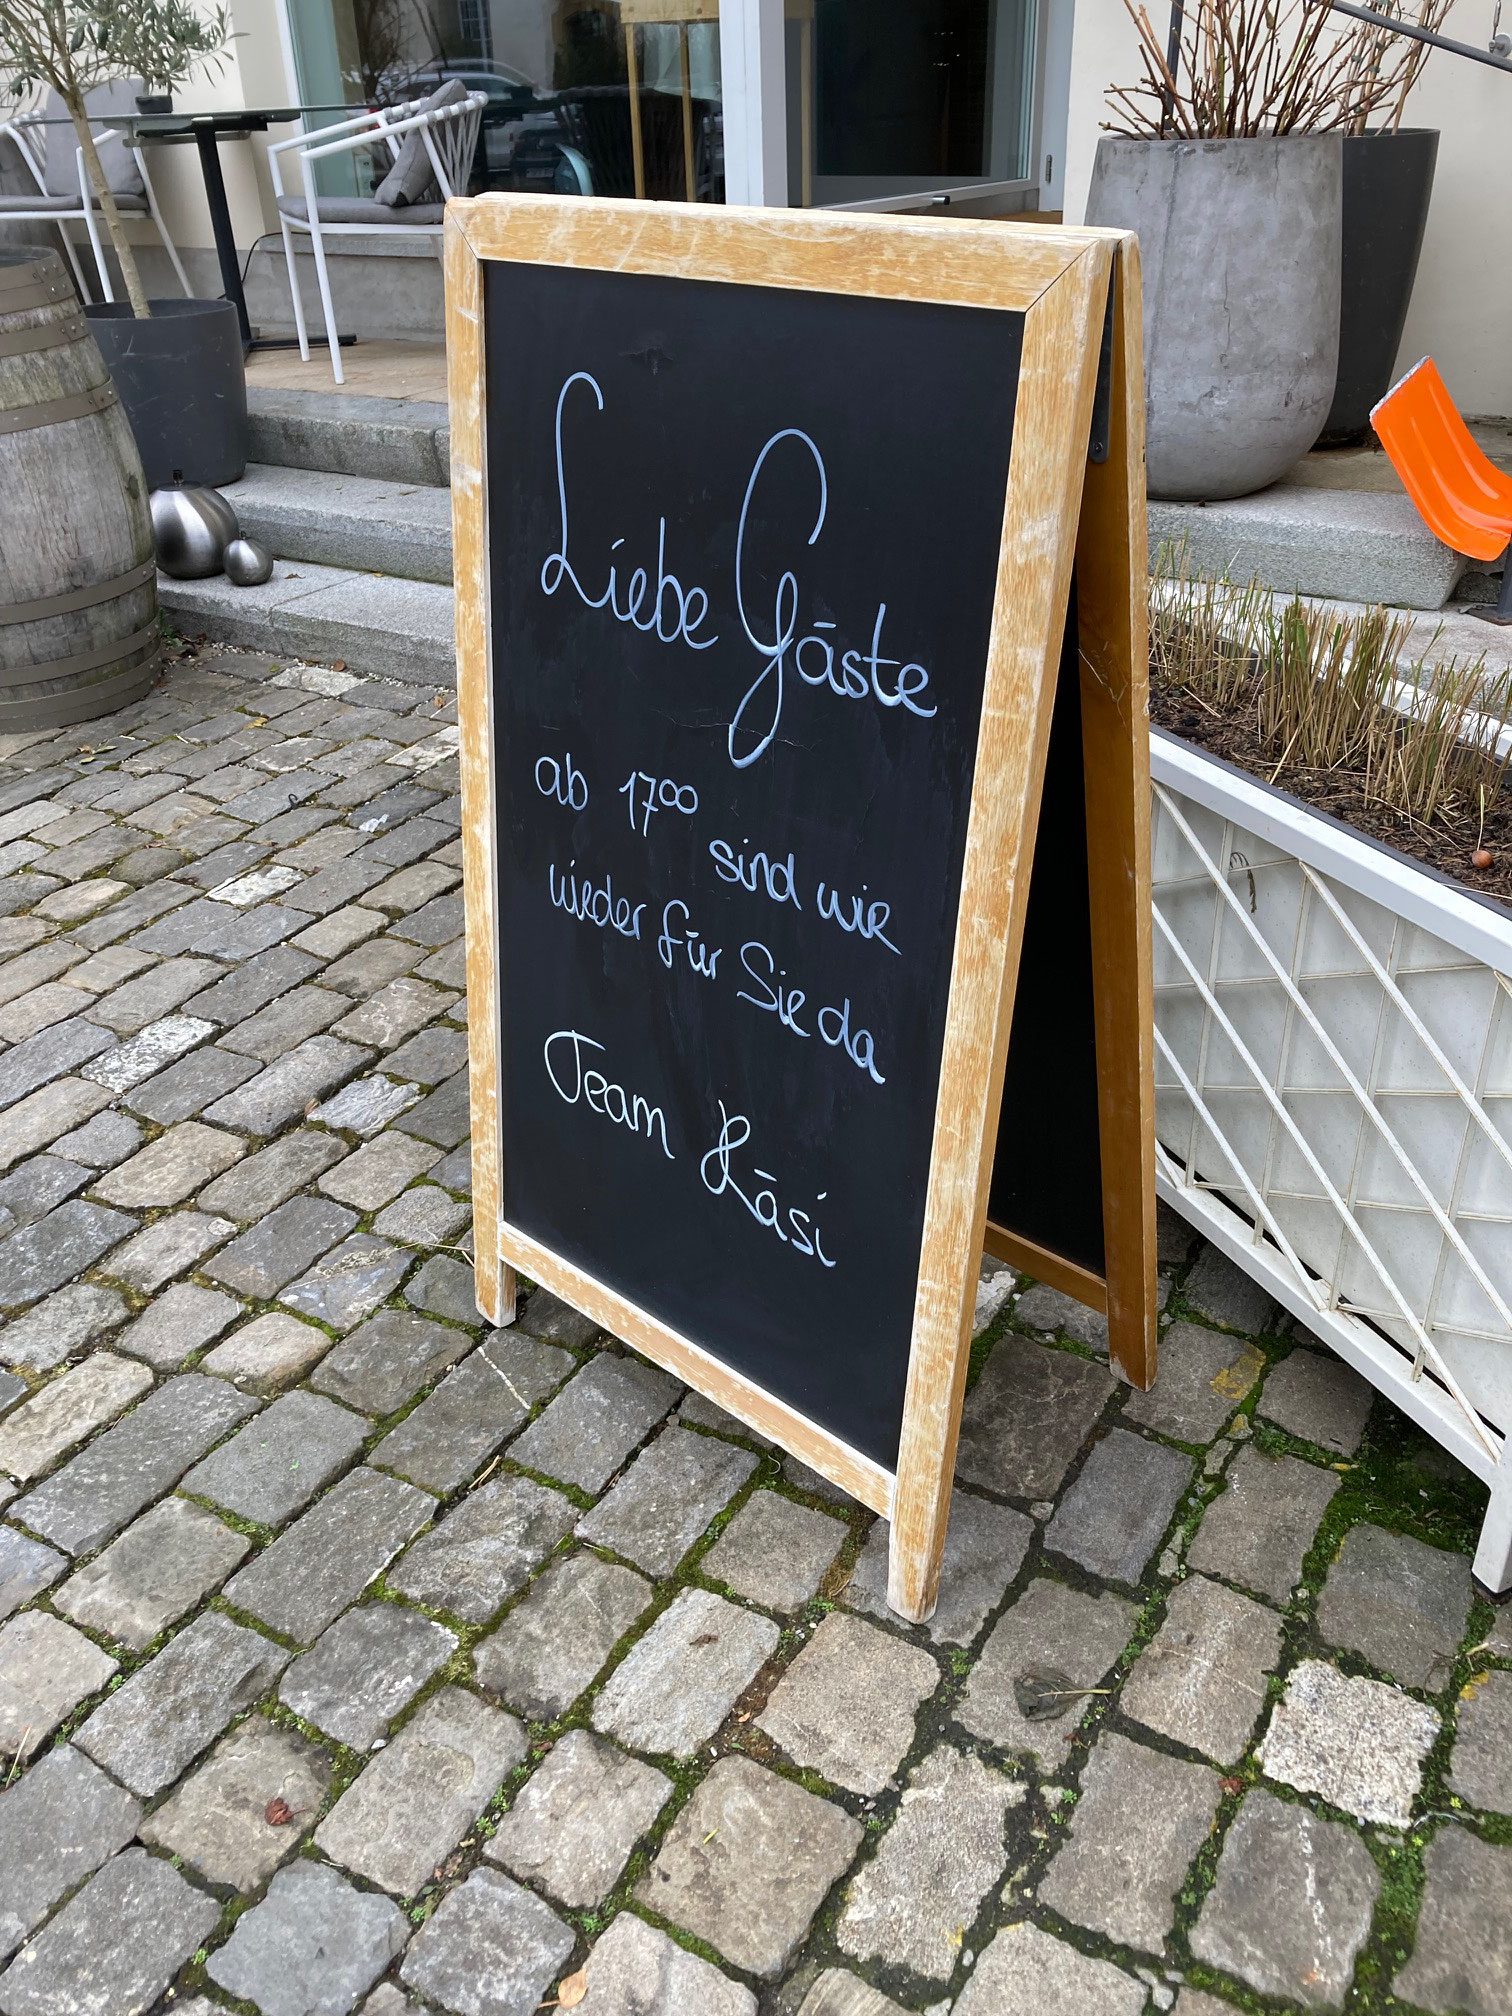 Liebe Gäste
ab 17⁰⁰ sind wir
wieder für Sie da
Team Käsi